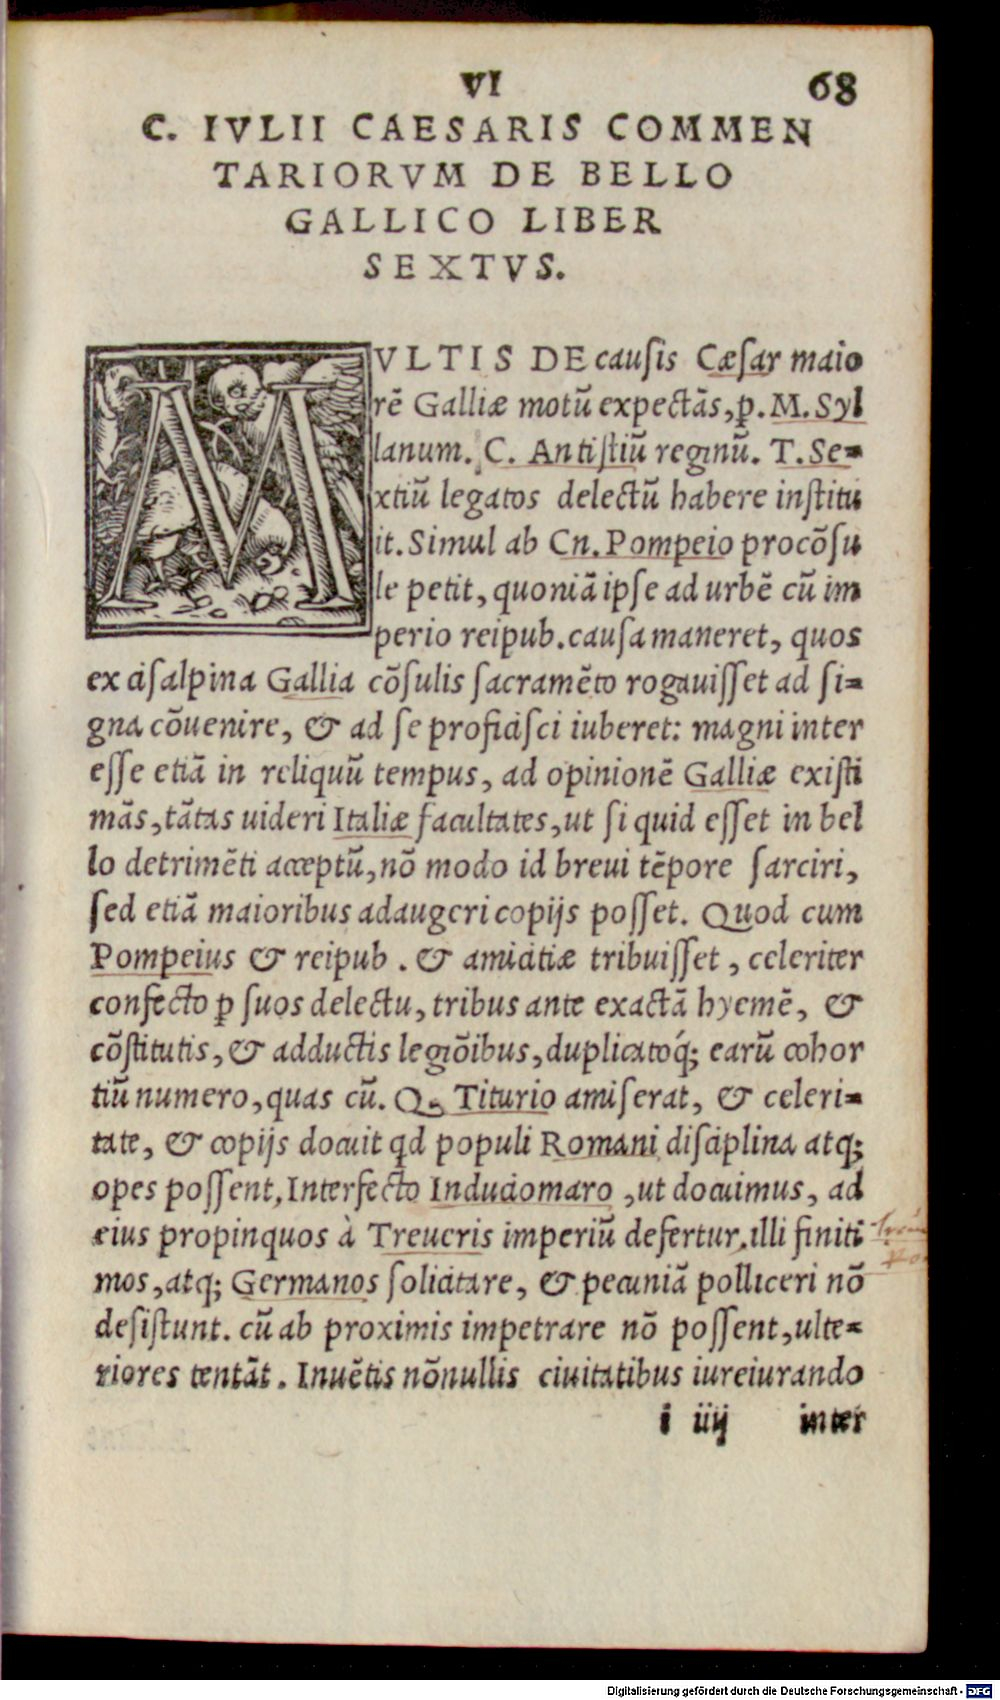 VI 68
C. IVLII CAESARIS COMMEN
TARIORVM DE BELLO
GALLICO LIBER
SEXTVS.
MVLTIS DE causis Cæsar maio
rē Galliæ motū expectās, ꝑ. M. Syl
lanum. C. Antistiū reginū. T. Se-
xtiū legatos delectū habere institu
it. Simul ab Cn. Pompeio procōsu
le petit, quoniā ipse ad urbē cū im
perio reipub. causa maneret, quos
ex cisalpina Gallia cōsulis sacramēto rogauisset ad si-
gna cōuenire, & ad se proficisci iuberet: magni inter
esse etiā in reliquū tempus, ad opinionē Galliæ existi
mās, tātas uideri Italiæ facultates, ut si quid esset in bel
lo detrimēti acceptū, nō modo id breui tēpore sarciri,
sed etiā maioribus adaugeri copijs posset. Quod cum
Pompeius & reipub. & amicitiæ tribuisset, celeriter
confecto ꝑ suos delectu, tribus ante exactā hyemē, &
cōstitutis, & adductis legiōibus, duplicatoq́; earū cohor
tiū numero, quas cū. Q. Titurio amiserat, & celeri-
tate, & copijs docuit qd populi Romani disciplina atq;
opes possent, Interfecto Induciomaro, ut docuimus, ad
eius propinquos à Treueris imperiū defertur. illi finiti
mos, atq; Germanos solicitare, & pecuniā polliceri nō
desistunt. cū ab proximis impetrare nō possent, ulte-
riores tentāt. Inuētis nōnullis ciuitatibus iureiurando
i iiij inter
Digitalisierung gefördert durch die Deutsche Forschungsgemeinschaft - DFG